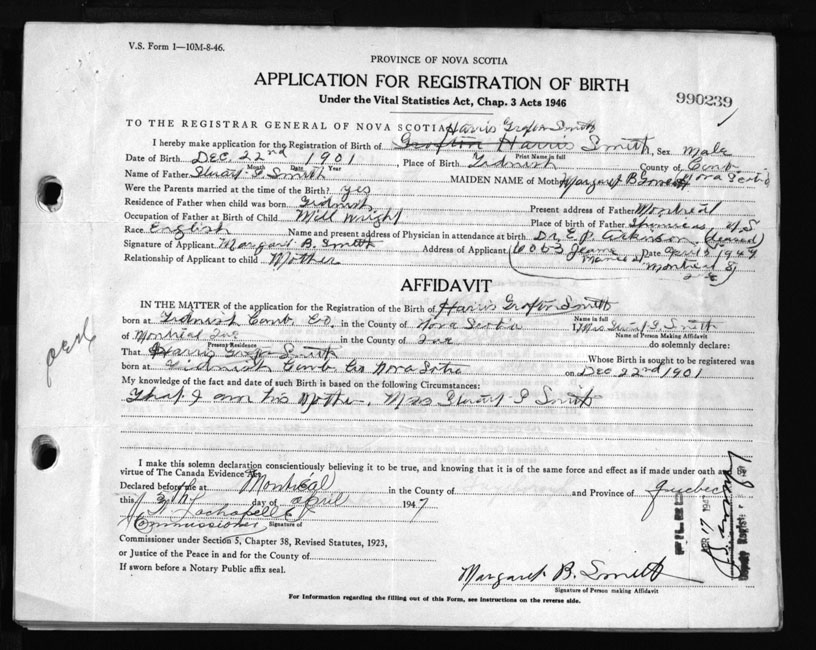 V.S. Form 1—10M-8-46.
PROVINCE OF NOVA SCOTIA
APPLICATION FOR REGISTRATION OF BIRTH
Under the Vital Statistics Act, Chap. 3 Acts 1946
990239
TO THE REGISTRAR GENERAL OF NOVA SCOTIA Harris Grafton Smith
I hereby make application for the Registration of Birth of Grafton Harris Smith, Sex Male
Print Name in full
Date of Birth Dec. 22nd 1901, Place of Birth Tidnish County of Cumb
Date Year
Name of Father Stuart G Smith MAIDEN NAME of Mother Margaret B Nova Scotia
Were the Parents married at the time of Birth? yes
Residence of Father when child was born Tidnish Present address of Father Montreal
Occupation of Father at Birth of Child Mill Wright Place of birth of Father N.S
Race English Name and present address of Physician in attendance at birth Dr. E. P. (deceased)
Signature of Applicant Margaret B. Smith Address of Applicant 6063 Jeanne Mance St Date April 3 1947
Relationship of Applicant to child Mother Montreal 8
Que
AFFIDAVIT
IN THE MATTER of the application for the Registration of the Birth of Harris Grafton Smith
Name in full
born at Tidnish Cumb. Co. in the County of Nova Scotia I, Mrs Stuart G. Smith
Name of Person Making Affidavit
of Montreal Que in the County of Que do solemnly declare:
Present Residence
That Harris Grafton Smith Whose Birth is sought to be registered was
born at Tidnish Cumb Co Nova Scotia on Dec 22nd 1901
My knowledge of the fact and date of such Birth is based on the following Circumstances:
That I am his Mother. Mrs Stuart G Smith
I make this solemn declaration conscientiously believing it to be true, and knowing that it is of the same force and effect as if made under oath and
virtue of The Canada Evidence Act.
Declared before me at Montréal in the County of and Province of Quebec
this 3th day of april 1947
Lachapelle
Commissioner Signature of
Commissioner under Section 5, Chapter 38, Revised Statutes, 1923,
or Justice of the Peace in and for the County of
If sworn before a Notary Public affix seal.
Margaret B. Smith
Signature of Person making Affidavit
FILED
APR 17 1947
For Information regarding the filling out of this Form, see instructions on the reverse side.